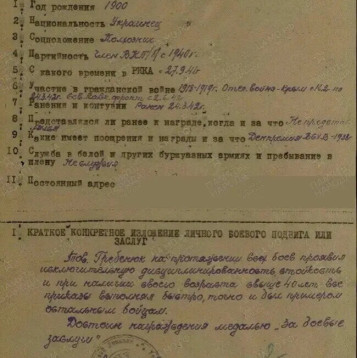 1 Год рождения 1900
2 Национальность Украинец
3 Соцположение Колхозник
4 Партийность Член ВКП(б) с 1940 г.
5 С какого времени в РККА
6 Участие в гражданской войне 1918-1919 г.
7 Ранения и контузии Ранен 24.3.42 г.
8 Представлялся ли ранее к награде, когда и за что Не представ
лялся
9 Какие имеет поощрения и награды и за что
10 Служба в белой и других буржуазных армиях и пребывание в
плену Не служил
11 Постоянный адрес
I КРАТКОЕ КОНКРЕТНОЕ ИЗЛОЖЕНИЕ ЛИЧНОГО БОЕВОГО ПОДВИГА ИЛИ
ЗАСЛУГ
Тов. Гребенюк на протяжении всех боев проявил
исключительную дисциплинированность, стойкость
и при наличии своего возраста свыше 40 лет все
приказы выполнял быстро, точно и был примером
остальным бойцам.
Достоин награждения медалью „За боевые
заслуги"